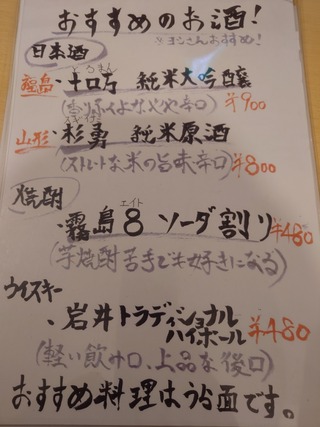 おすすめのお酒!
※ヨシさんおすすめ!
日本酒
とろまん
福島・十ロ万 純米大吟醸
¥900
山形・杉勇 純米原酒
(ストレートな米の旨味辛口) ¥800
焼酎
エイト
・霧島8 ソーダ割り ¥480
(芋焼酎苦手でも好きになる)
ウイスキー
・岩井トラディショナル
ハイボール ¥480
(軽い飲み口、上品な後口)
おすすめ料理はうら面です。